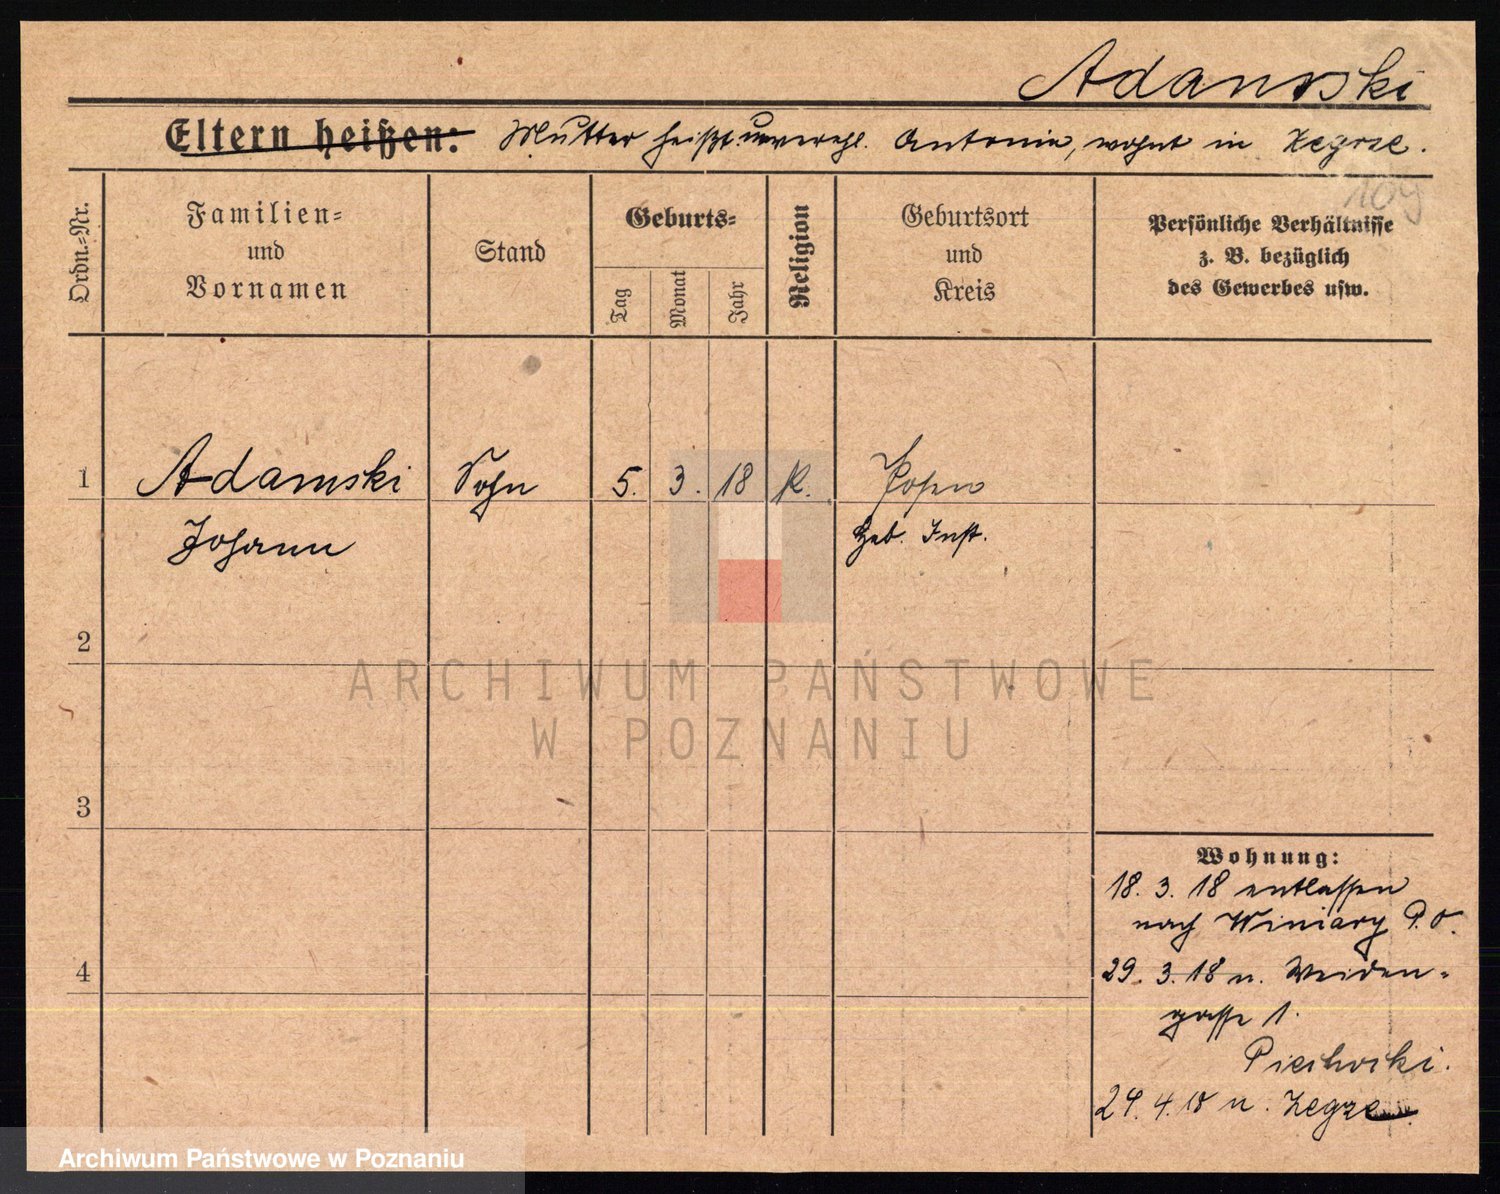 Adamski
Eltern heißen: Mutter heißt: unverehl. Antonie, wohnt in Zegrze.
109
Ordn.=Nr.
Familien=
und
Vornamen
Stand
Geburts=
Tag
Monat
Jahr
Religion
Geburtsort
und
Kreis
Persönliche Verhältnisse
z. B. bezüglich
des Gewerbes usw.
1 Adamski Sohn 5. 3. 18 K. Posen
Johann Geb. Inst.
2
3
4
Wohnung:
18. 3. 18 entlassen
nach Winiary P. O.
29. 3. 18 n. Weiden-
gasse 1.
Piechocki.
24. 4. 18 n. Zegrze
ARCHIWUM PAŃSTWOWE
W POZNANIU
Archiwum Państwowe w Poznaniu